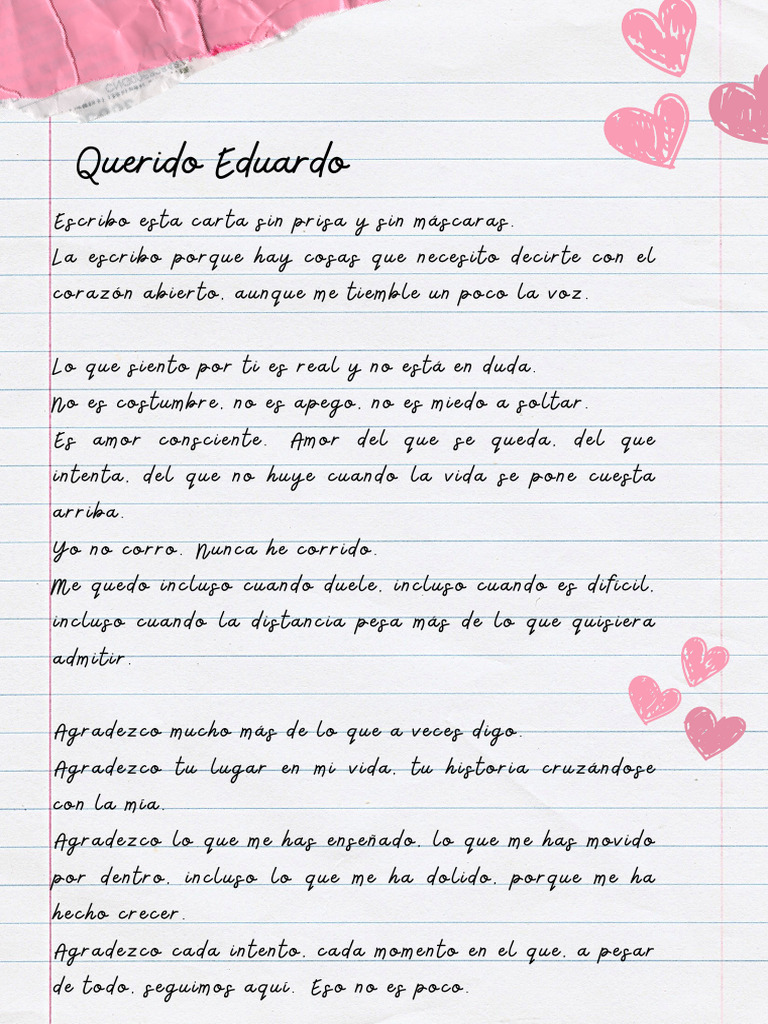 Querido Eduardo
Escribo esta carta sin prisa y sin máscaras.
La escribo porque hay cosas que necesito decirte con el
corazón abierto, aunque me tiemble un poco la voz.
Lo que siento por ti es real y no está en duda.
No es costumbre, no es apego, no es miedo a soltar.
Es amor consciente. Amor del que se queda, del que
intenta, del que no huye cuando la vida se pone cuesta
arriba.
Yo no corro. Nunca he corrido.
Me quedo incluso cuando duele, incluso cuando es difícil,
incluso cuando la distancia pesa más de lo que quisiera
admitir.
Agradezco mucho más de lo que a veces digo.
Agradezco tu lugar en mi vida, tu historia cruzándose
con la mía.
Agradezco lo que me has enseñado, lo que me has movido
por dentro, incluso lo que me ha dolido, porque me ha
hecho crecer.
Agradezco cada intento, cada momento en el que, a pesar
de todo, seguimos aquí. Eso no es poco.